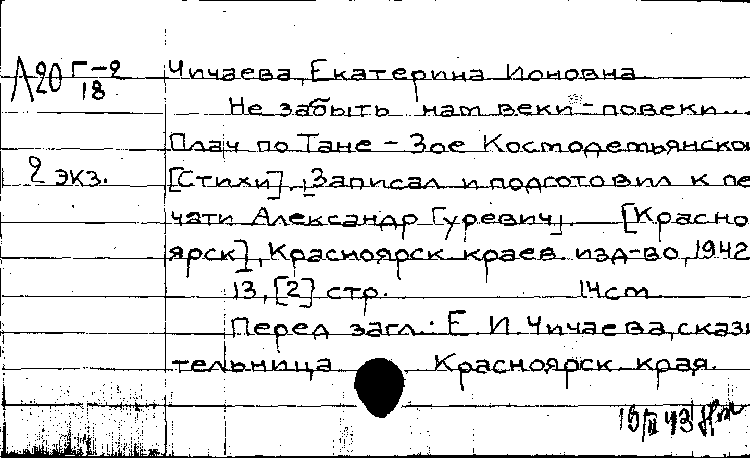 Л20 Г-2/18 Чичаева, Екатерина Ионовна
Не забыть нам веки-повеки...
Плач по Тане - Зое Космодемьянской
2 экз. [Стихи]. Записал и подготовил к пе
чати Александр Гуревич. [Красно
ярск], Красноярск. краев. изд-во, 1942
13, [2] стр. 14cm
Перед загл.: Е. И. Чичаева, скази
тельница Красноярск. края.